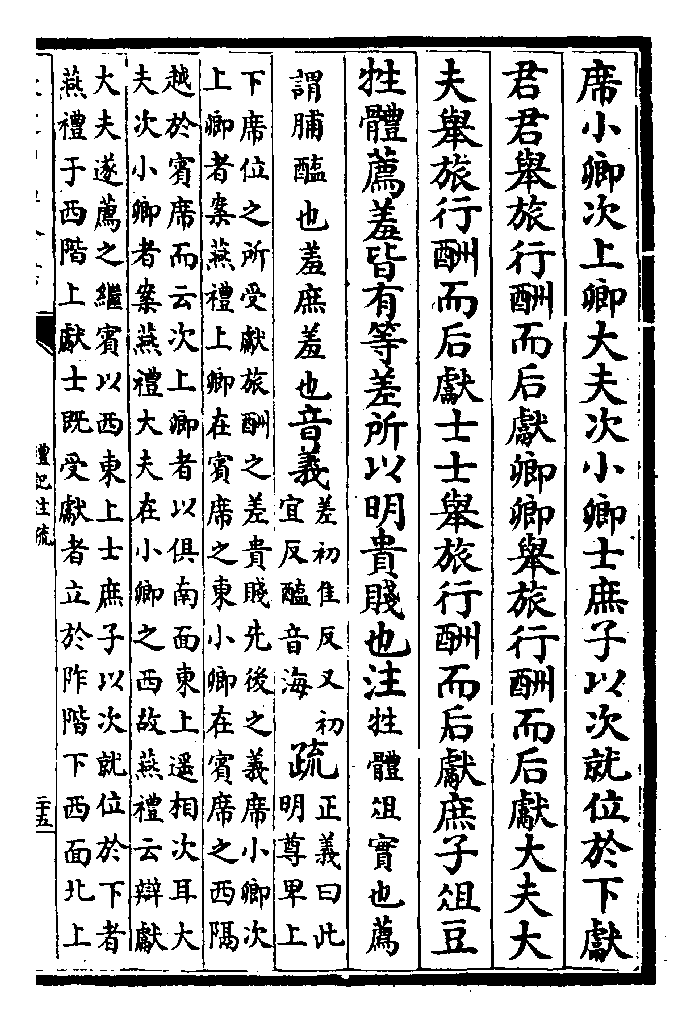 席小卿次上卿大夫次小卿士庶子以次就位於下獻
君君舉旅行酬而后獻卿卿舉旅行酬而后獻大夫大
夫舉旅行酬而后獻士士舉旅行酬而后獻庶子俎豆
牲體薦羞皆有等差所以明貴賤也注牲體俎實也薦
謂脯醢也羞庶羞也音義差初隹反又初
宜反醢音海疏正義曰此
明尊卑上
下席位之所受獻旅酬之差貴賤先後之義席小卿次
上卿者案燕禮上卿在賓席之東小卿在賓席之西隔
越於賓席而云次上卿者以俱南面東上遥相次耳大
夫次小卿者案燕禮大夫在小卿之西故燕禮云辯獻
大夫遂薦之繼賓以西東上士庶子以次就位於下者
燕禮于西階上獻士既受獻者立於阼階下西面北上
禮記注疏
二十五